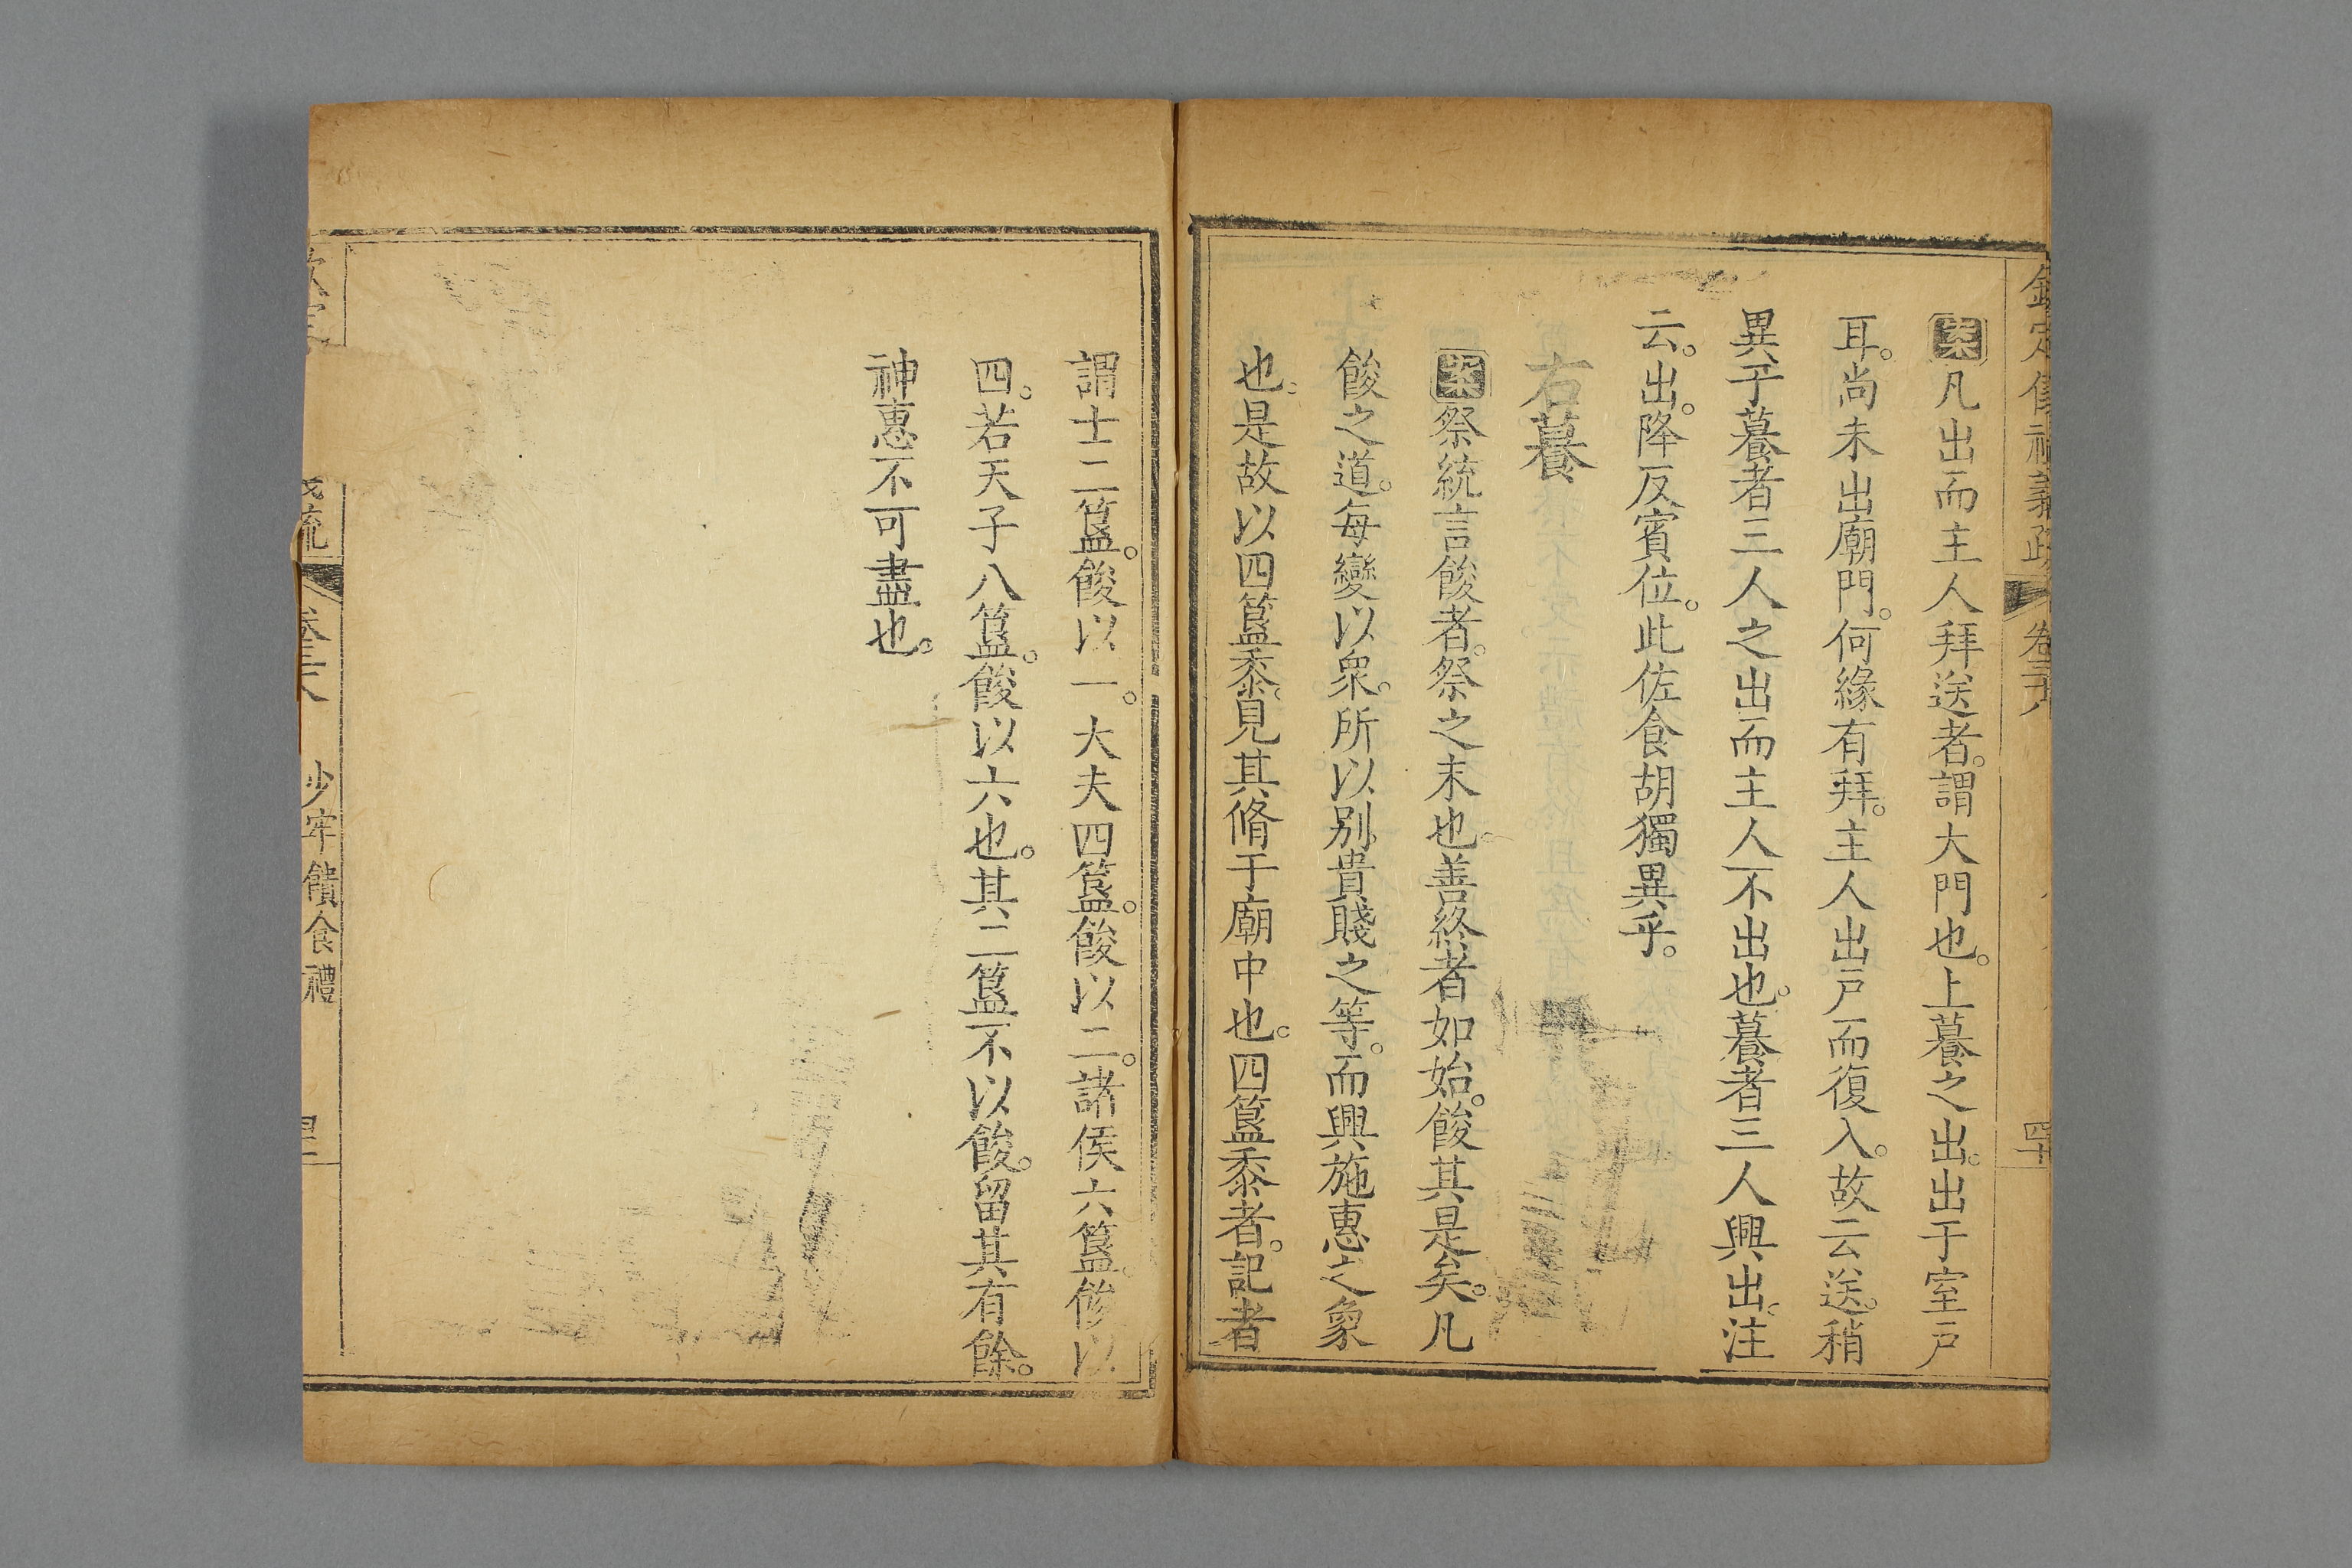 欽定儀禮義疏 卷三十八 四十
案凡出而主人拜送者。謂大門也。上䉵之出。出于室戸
耳。尚未出廟門。何緣有拜。主人出戸而復入。故云送。稍
異于䉵者三人之出而主人不出也。䉵者三人興出。注
云。出。降反賓位。此佐食胡獨異乎。
右䉵
案祭統言餕者。祭之末也。善終者如始。餕其是矣。凡
餕之道。每變以衆。所以别貴賤之等。而興施惠之象
也。是故以四簋黍。見其脩于廟中也。四簋黍者。記者
謂士二簋。餕以一。大夫四簋。餕以二。諸侯六簋。餕以
四。若天子八簋。餕以六也。其二簋不以餕。留其有餘。
神惠不可盡也。
卷三十八 少牢饋食禮